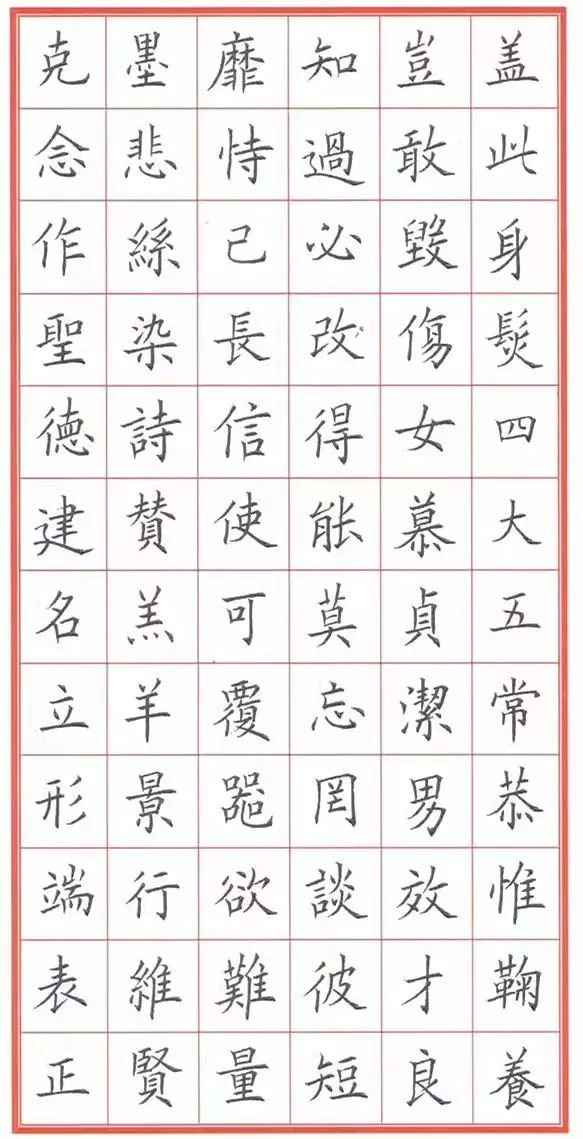 盖此身髮四大五常恭惟鞠養
豈敢毀傷女慕貞潔男效才良
知過必改得能莫忘罔談彼短
靡恃己長信使可覆器欲難量
墨悲絲染詩贊羔羊景行維賢
克念作聖德建名立形端表正